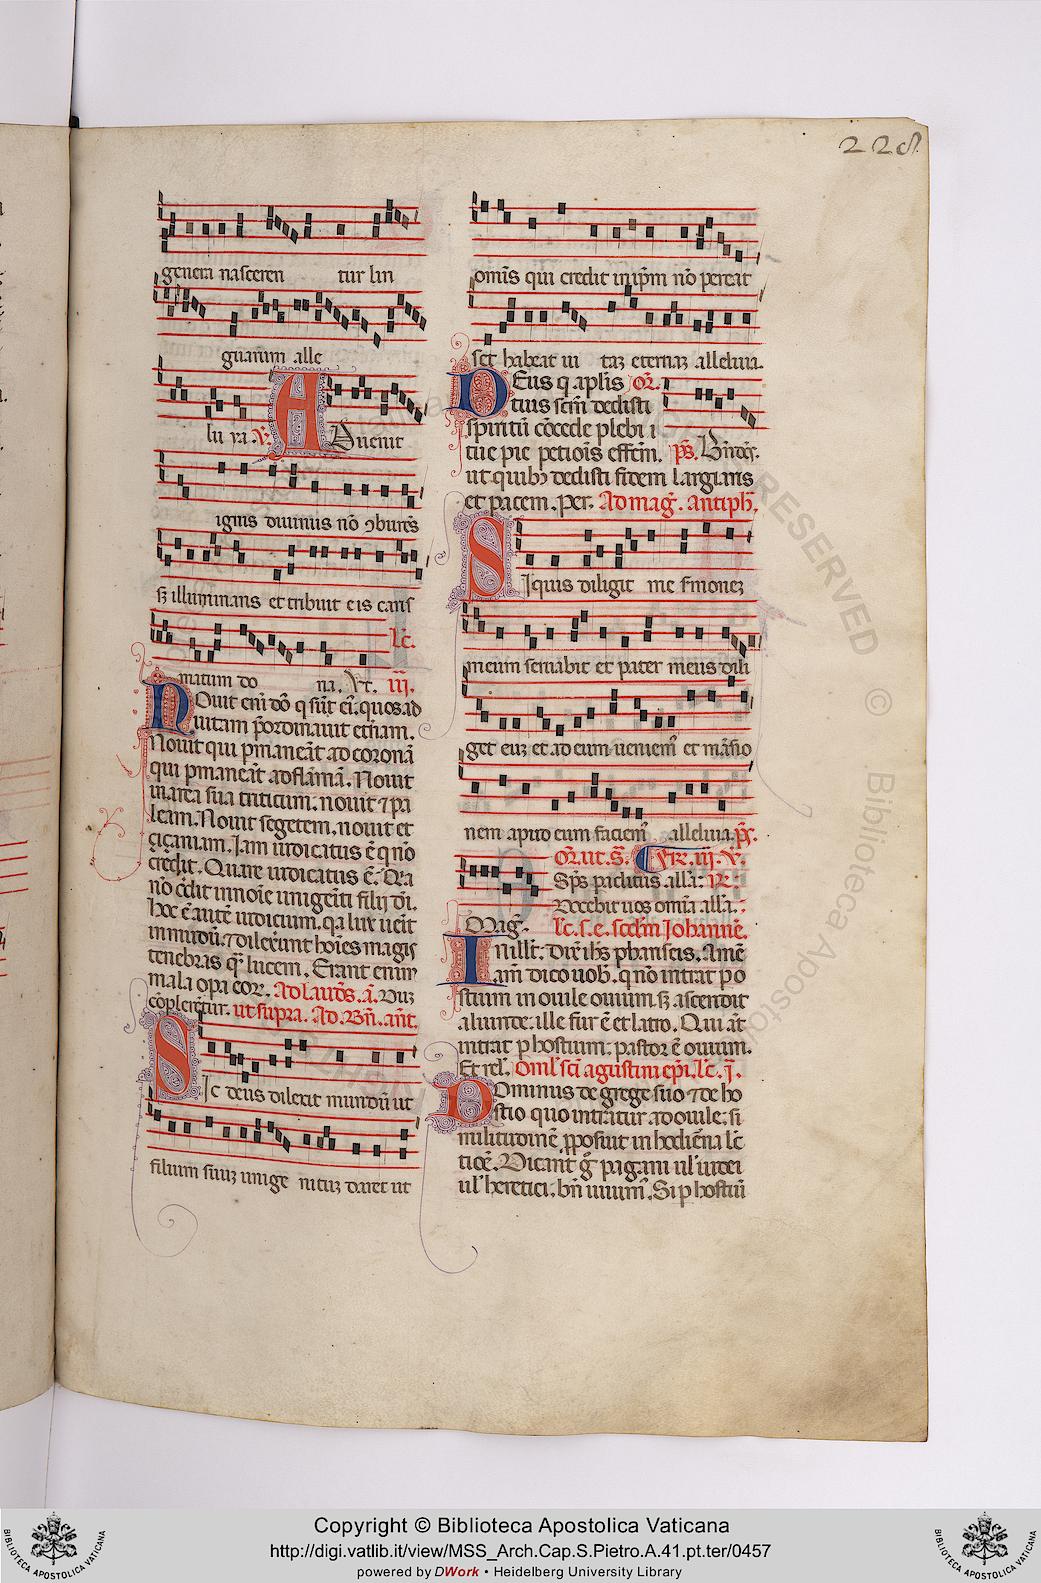 228
genera nasceren tur lin
guarum alle
lu ia. V. Advenit
ignis divinus nō ↄburēs
sꝫ illuminans et tribuit eis caris
matum do na. Vr. lc̄. iii.
Novit eni dō q sūt ei. quos ad
vitam p̄ordinavit et̄nam.
Novit qui pmaneāt ad coronā
qui pmaneāt ad flāmā. Novit
in area sua triticum. novit ⁊ pa
leam. Novit segetem. novit et
çiçaniam. Iam iudicatus ē q nō
credit. Quare iudicatus ē. Qia
nō c̄dit in noīe unigeīti filij di.
hoc ē autē iudicium. qa lux veīt
in mūdū. ⁊ dilexerūt hoīes magis
tenebras qͣ lucem. Erant enim
mala opa eor. Ad laudꝭ. a. Dum
cōplerētur. ut supra. Ad. Bn̄. ant.
Sic deus dilexit mundū ut
filium suuꝫ unige nituꝫ daret ut
omīs qui credit in ipm nō pereat
set habeat vi taꝫ eternaꝫ alleluia.
Deus q aplis or̄.
tuis scm dedisti
spiritū cōcede plebi
tue pie petiois effcm. ps. Bn̄dcs.
ut quibꝰ dedisti fidem largiaris
et pacem. Per. Ad mag̅. antiph.
Siquis diligit me smoneꝫ
meum servabit et pater meus dili
get euꝫ et ad eum veniemꝰ et māsio
nem aput eum faciemꝰ alleluia. ps.
or̄. ut. s̄. Fr̄e. iij. V.
Sp̄s paclitus. alla. r̄:
Docebit vos omia alla.
Mag̅. lc̄. s. e. scdm Johannē.
In illt. Dix̄ ihs phariseis. Amē
am̄ dico vob. q nō intrat p o
stium in ovile ovium sꝫ ascendit
aliunde: ille fur ē et latro. Qui āt
intrat p hostium: pastor ē ovium.
Et rel. Omlꝰ sci agustini epi. lc̄. j.
Dominus de grege suo ⁊ de ho
stio quo intratur ad ovile: si
militudinē pposuit in hodiēna lc̄
tiōe. Dicant g pagani vl' iudei
vl' heretici. bn̄ vivimꝰ. Si p hostiū
RESERVED © Biblioteca Apostolica
Copyright © Biblioteca Apostolica Vaticana
http://digi.vatlib.it/view/MSS_Arch.Cap.S.Pietro.A.41.pt.ter/0457
powered by DWork • Heidelberg University Library
BIBLIOTECA APOSTOLICA VATICANA
BIBLIOTECA APOSTOLICA VATICANA